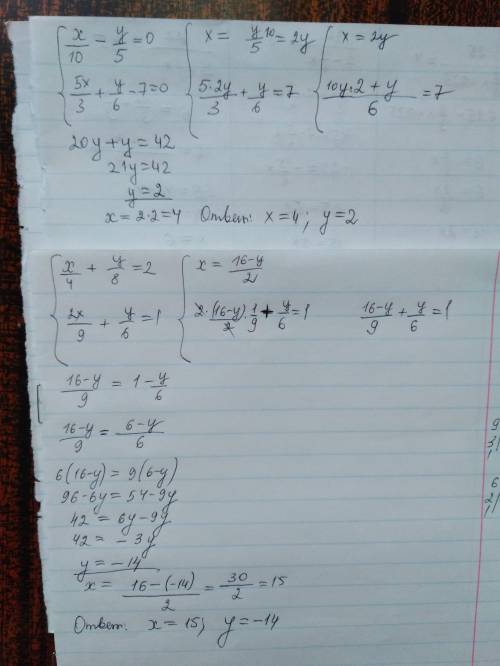 x/10 - y/5 = 0   x = y/5 10 = 2y   x = 2y
5x/3 + y/6 - 7 = 0   5·2y/3 + y/6 = 7   10y·2 + y/6 = 7
20y + y = 42
21y = 42
y = 2
x = 2·2 = 4   Ответ: x = 4; y = 2
x/4 + y/8 = 2   x = 16-y/2
2x/9 + y/6 = 1   2·(16-y)/2 · 1/9 + y/6 = 1   16-y/9 + y/6 = 1
16-y/9 = 1 - y/6
16-y/9 = 6-y/6
6(16-y) = 9(6-y)
96-6y = 54-9y
42 = 6y-9y
42 = -3y
y = -14
x = 16-(-14)/2 = 30/2 = 15
Ответ: x = 15; y = -14